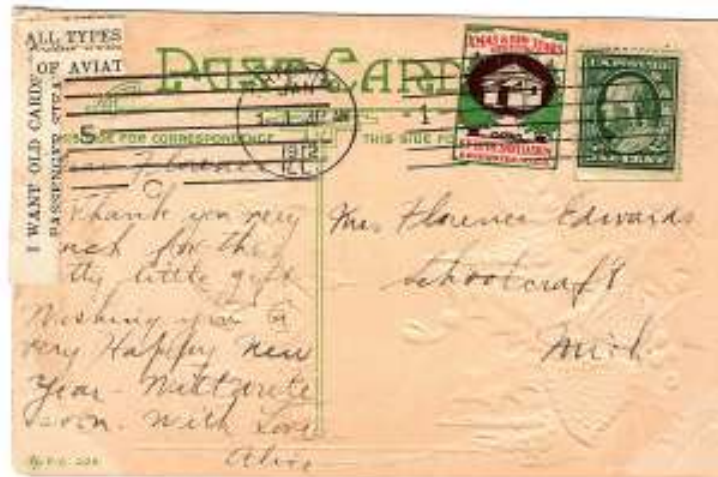 ALL TYPES
OF AVIAT
I WANT OLD CARDS
PASSENGER
POST CARD
JAN
1912
ILL.
1
5
SIDE FOR CORRESPONDENCE
THIS SIDE FO
XMAS & NEW YEARS
Dear Florence
Thank you very
much for the
little gift
Wishing you a
very Happy New
Year - Will write
soon. With Love
Alice
Mrs Florence Edwards
Schoolcraft
Mich